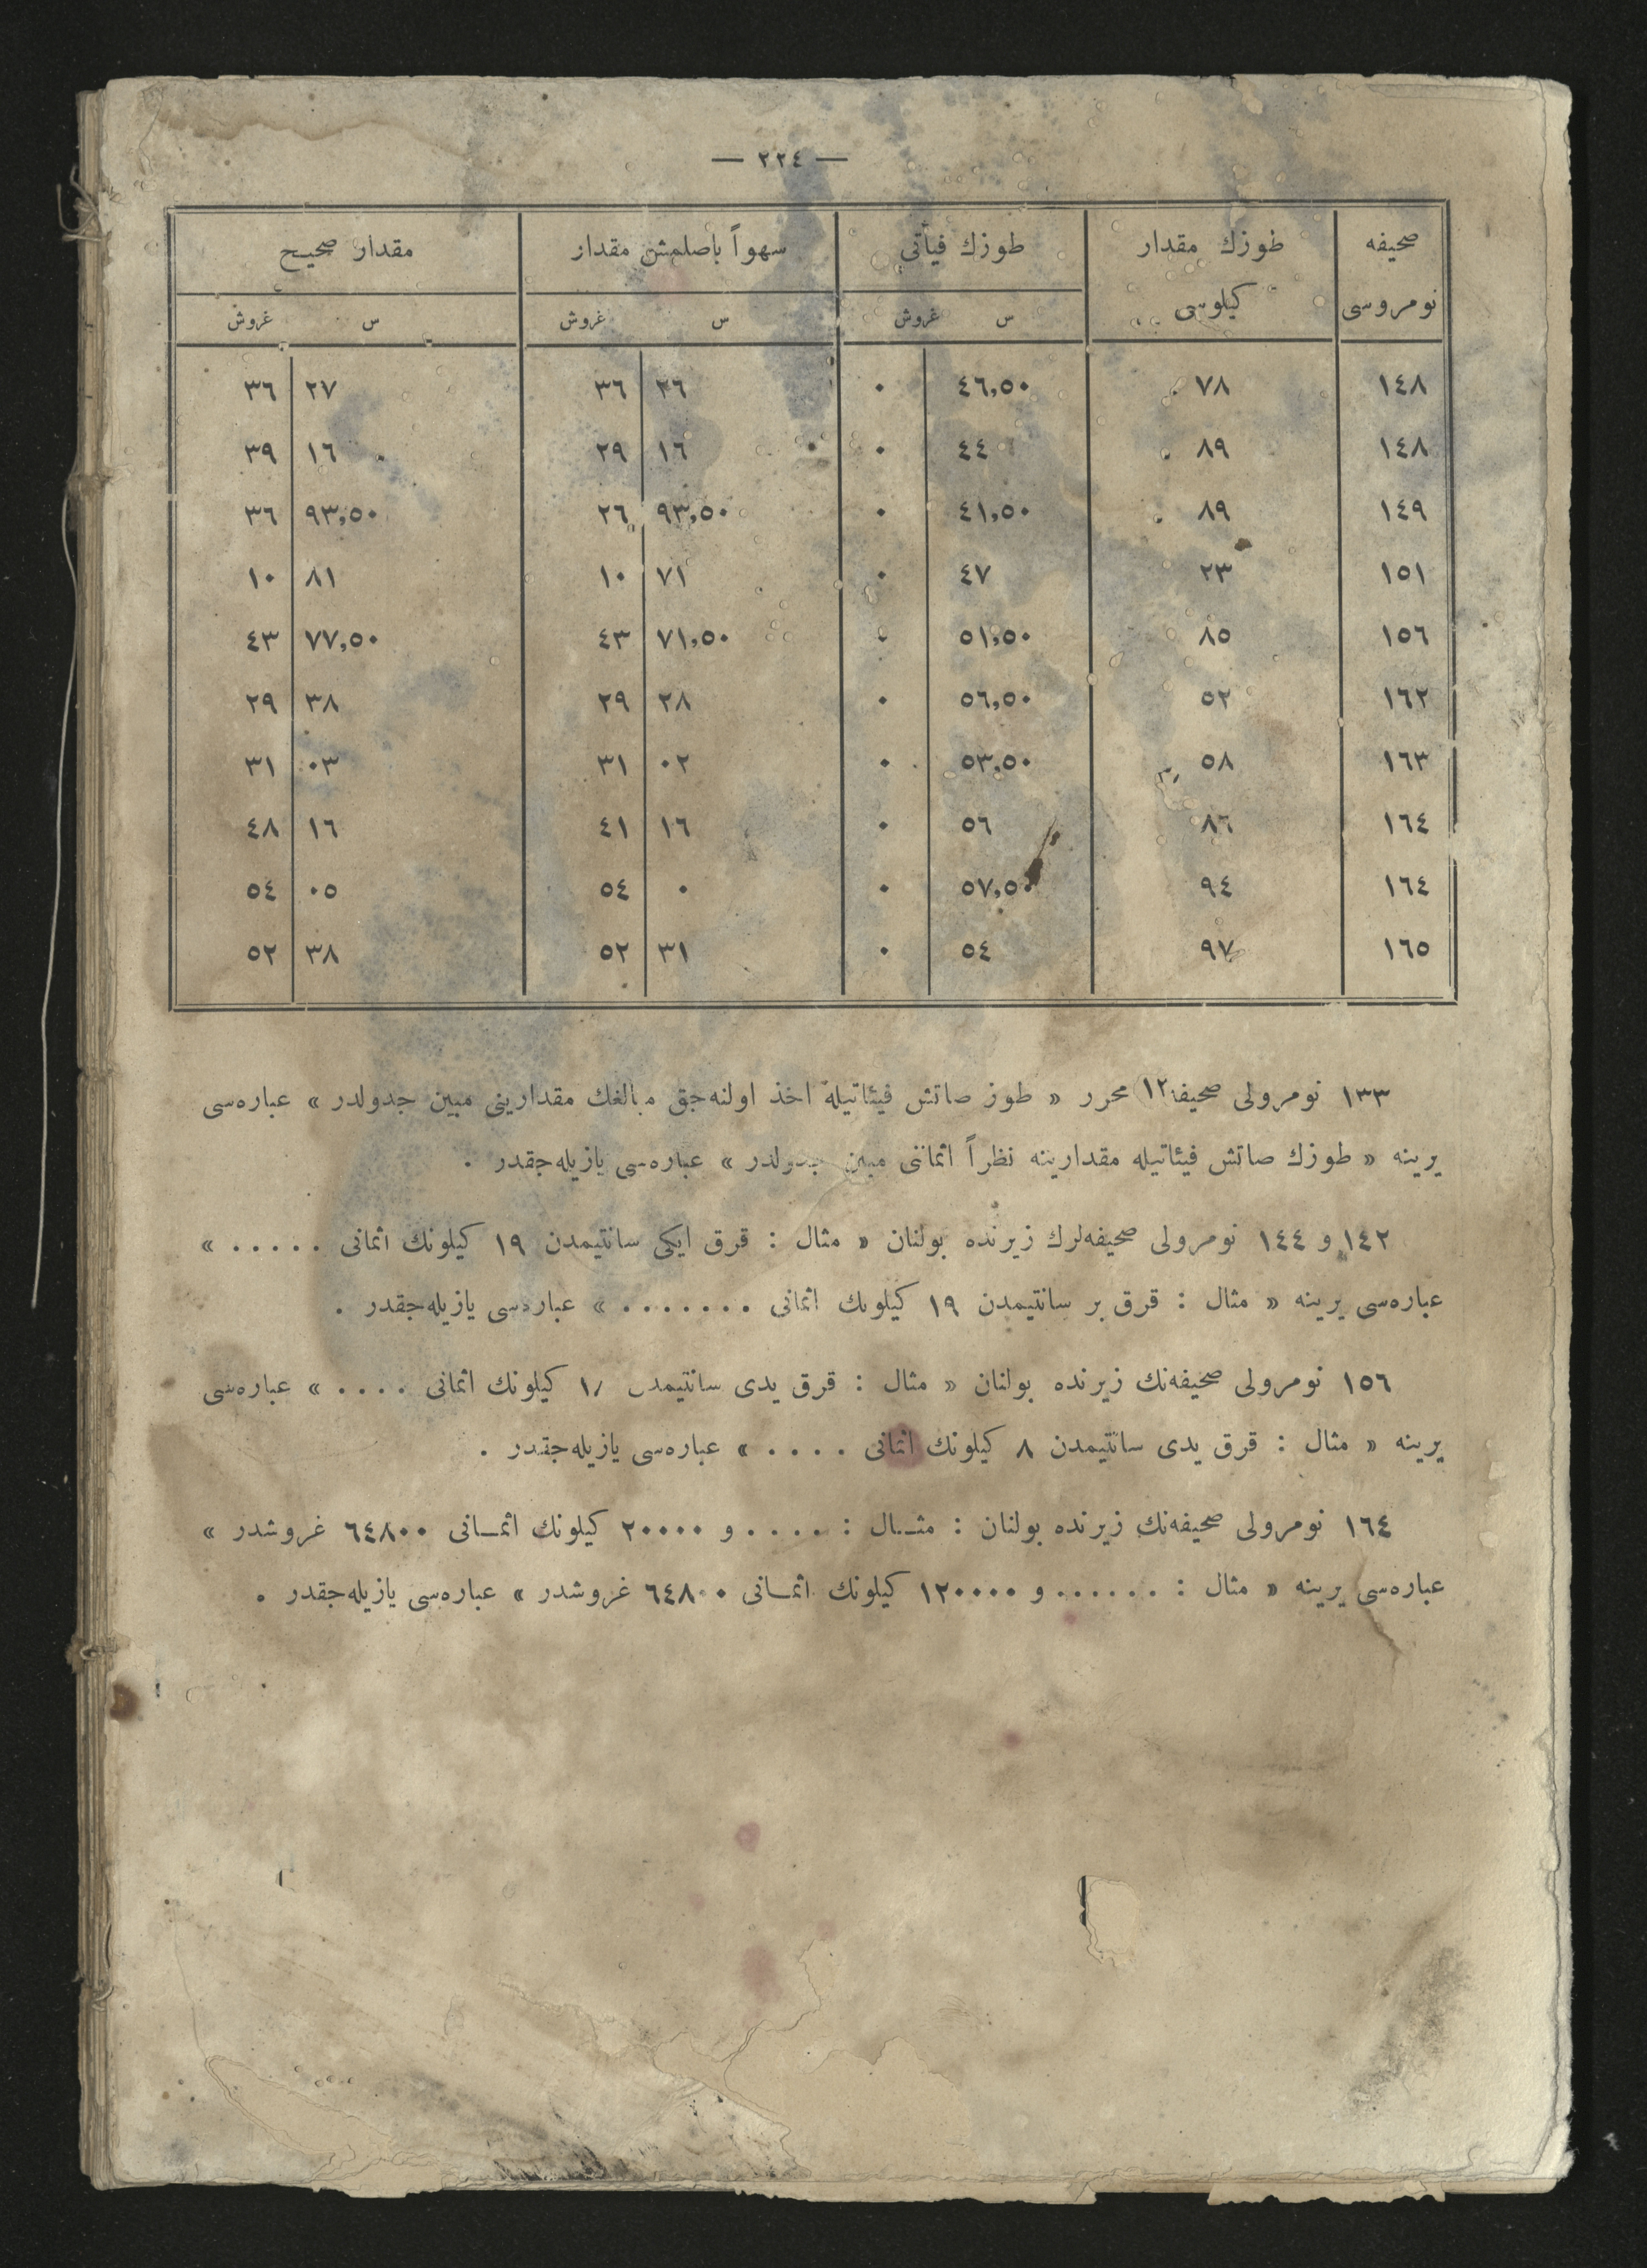 — ٢٢٤ —
صحیفه طوزك مقدار طوزك فیأتی سهواً باصلمش مقدار مقدار صحیح
نومروسی کیلوسی س غروش س غروش س غروش
١٤٨ ٧٨ ٤٦,٥٠ ٠ ٢٦ ٣٦ ٢٧ ٣٦
١٤٨ ٨٩ ٤٤ ٠ ١٦ ٢٩ ١٦ ٣٩
١٤٩ ٨٩ ٤١,٥٠ ٠ ٩٣,٥٠ ٢٦ ٩٣,٥٠ ٣٦
١٥١ ٢٣ ٤٧ ٠ ٧١ ١٠ ٨١ ١٠
١٥٦ ٨٥ ٥١,٥٠ ٠ ٧١,٥٠ ٤٣ ٧٧,٥٠ ٤٣
١٦٢ ٥٢ ٥٦,٥٠ ٠ ٢٨ ٢٩ ٣٨ ٢٩
١٦٣ ٥٨ ٥٣,٥٠ ٠ ٠٢ ٣١ ٠٣ ٣١
١٦٤ ٨٦ ٥٦ ٠ ١٦ ٤١ ١٦ ٤٨
١٦٤ ٩٤ ٥٧,٥٠ ٠ ٠ ٥٤ ٠٥ ٥٤
١٦٥ ٩٧ ٥٤ ٠ ٣١ ٥٢ ٣٨ ٥٢
١٣٣ نومرولی محرر « طوز صاتش فیئاتیله اخذ اولنه‌جق مبالغك مقدارینی مبین جدولدر » عباره‌سی
یرینه « طوزك صاتش فیئاتیله مقدارینه نظراً اثماننی مبین جدولدر » عباره‌سی یازیله‌جقدر .
١٤٢ و ١٤٤ نومرولی صحیفه‌لرك زیرنده بولنان « مثال : قرق ایکی سانتیمدن ١٩ کیلونك اثمانی . . . . . »
عباره‌سی یرینه « مثال : قرق بر سانتیمدن ١٩ کیلونك اثمانی . . . . . . . » عباره‌سی یازیله‌جقدر .
١٥٦ نومرولی صحیفه‌نك زیرنده بولنان « مثال : قرق یدی سانتیمدن کیلونك اثمانی . . . . » عباره‌سی
یرینه « مثال : قرق یدی سانتیمدن ٨ کیلونك اثمانی . . . . » عباره‌سی یازیله‌جقدر .
١٦٤ نومرولی صحیفه‌نك زیرنده بولنان : مثـال : . . . . و ٢٠٠٠٠ کیلونك اثمـانی ٦٤٨٠٠ غروشدر »
عباره‌سی یرینه « مثال : . . . . . . و ١٢٠٠٠٠ کیلونك اثمـانی ٦٤٨٠٠ غروشدر » عباره‌سی یازیله‌جقدر .